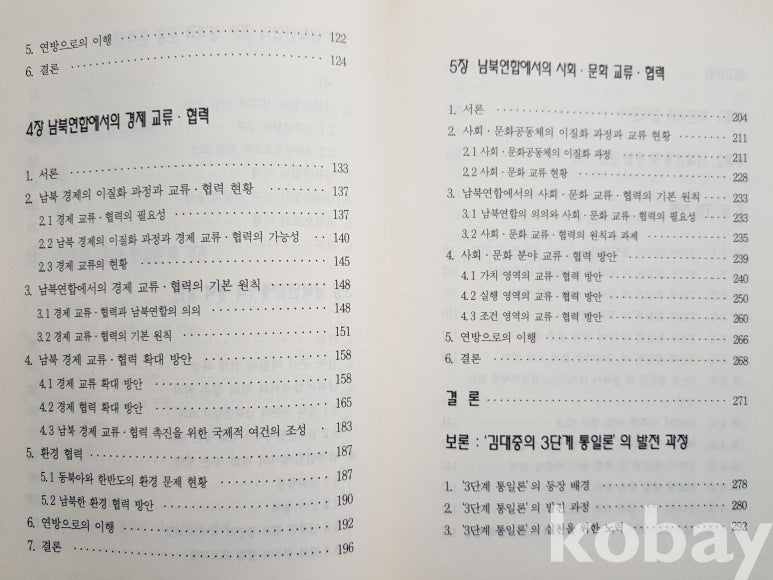 5. 연방으로의 이행 122
6. 결론 124
4장 남북연합에서의 경제 교류·협력
1. 서론 133
2. 남북 경제의 이질화 과정과 교류·협력 현황 137
2.1 경제 교류·협력의 필요성 137
2.2 남북 경제의 이질화 과정과 경제 교류·협력의 가능성 140
2.3 경제 교류의 현황 145
3. 남북연합에서의 경제 교류·협력의 기본 원칙 148
3.1 경제 교류·협력과 남북연합의 의의 148
3.2 경제 교류·협력의 기본 원칙 151
4. 남북 경제 교류·협력 확대 방안 158
4.1 경제 교류 확대 방안 158
4.2 경제 협력 확대 방안 165
4.3 남북 경제 교류·협력 촉진을 위한 국제적 여건의 조성 183
5. 환경 협력 187
5.1 동북아와 한반도의 환경 문제 현황 187
5.2 남북한 환경 협력 방안 190
6. 연방으로의 이행 192
7. 결론 196
5장 남북연합에서의 사회·문화 교류·협력
1. 서론 204
2. 사회·문화공동체의 이질화 과정과 교류 현황 211
2.1 사회·문화공동체의 이질화 과정 211
2.2 사회·문화 교류 현황 228
3. 남북연합에서의 사회·문화 교류·협력의 기본 원칙 233
3.1 남북연합의 의의와 사회·문화 교류·협력의 필요성 233
3.2 사회·문화 교류·협력의 원칙과 과제 235
4. 사회·문화 분야 교류·협력 방안 239
4.1 가치 영역의 교류·협력 방안 240
4.2 실행 영역의 교류·협력 방안 250
4.3 조건 영역의 교류·협력 방안 260
5. 연방으로의 이행 266
6. 결론 268
결 론 271
보론 : '김대중의 3단계 통일론'의 발전 과정
1. '3단계 통일론'의 등장 배경 278
2. '3단계 통일론'의 발전 과정 280
3. '3단계 통일론'의 실천을 위한 노력 293
kobay